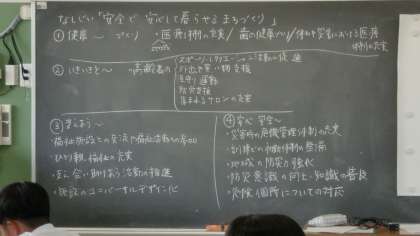 なしじい「安全で安心して暮らせるまちづくり」
①健康～づくり・医療体制の充実/歯の健康づくり/休日や夜における医療体制の充実
②いきいきと～の高齢者の
スポーツ・レクリエーション活動の促進
外出や買い物支援
見守り運動
防災支援
集まれるサロンの充実
③きんぼう～
・福祉施設との交流や福祉活動への参加
・ひとり親福祉の充実
・支え合い助け合う活動の推進
・施設のユニバーサルデザイン化
④安心安全～
・災害時の危機管理体制の充実
・消防体制の整備
・地域の防災力強化
・防災意識の向上・知識の普及
・危険個所についての対応